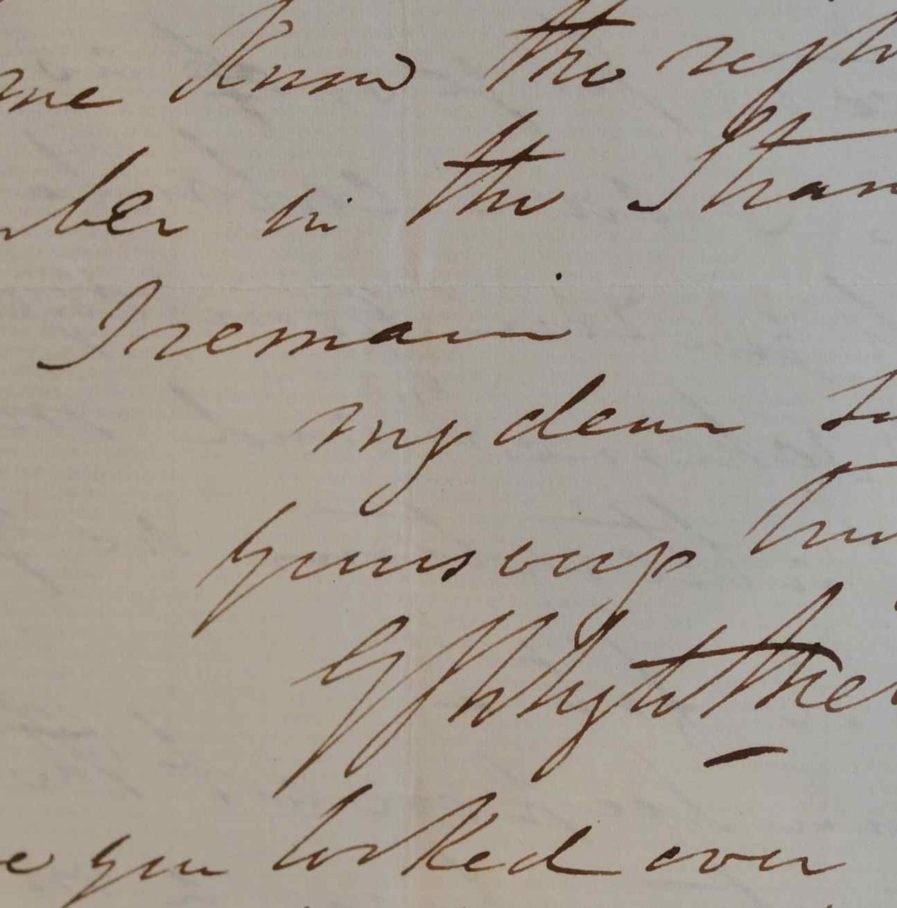 me know the right
ber in the Stran
I remain
my dear
yours very tru
over you looked over